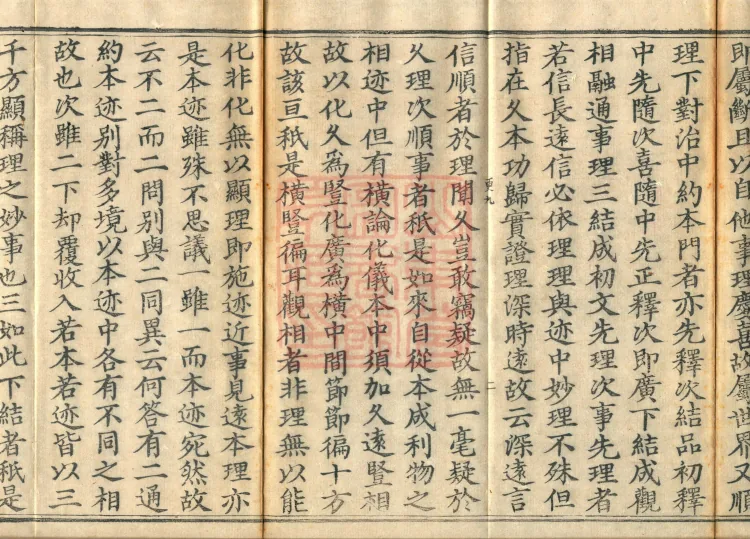 即屬斷且以自他事理慶喜故屬世界又順
理下對治中約本門者亦先釋次結品初釋
中先隨次喜隨中先正釋次即廣下結成觀
相融通事理三結成初文先理次事先理者
若信長遠信必依理理與迹中妙理不殊但
指在久本功歸實證理深時遠故云深遠言
更九
二
信順者於理聞久豈敢竊疑故無一毫疑於
久理次順事者秖是如來自從本成利物之
相迹中但有橫論化儀本中須加久遠豎相
故以化久為豎化廣為橫中間節節徧十方
故該亘秖是橫豎徧耳觀相者非理無以能
化非化無以顯理即施迹近事見遠本理亦
是本迹雖殊不思議一雖一而本迹宛然故
云不二而二問別與二同異云何答有二通
約本迹別對多境以本迹中各有不同之相
故也次雖二下却覆收入若本若迹皆以三
千方顯稱理之妙事也三如此下結者秖是